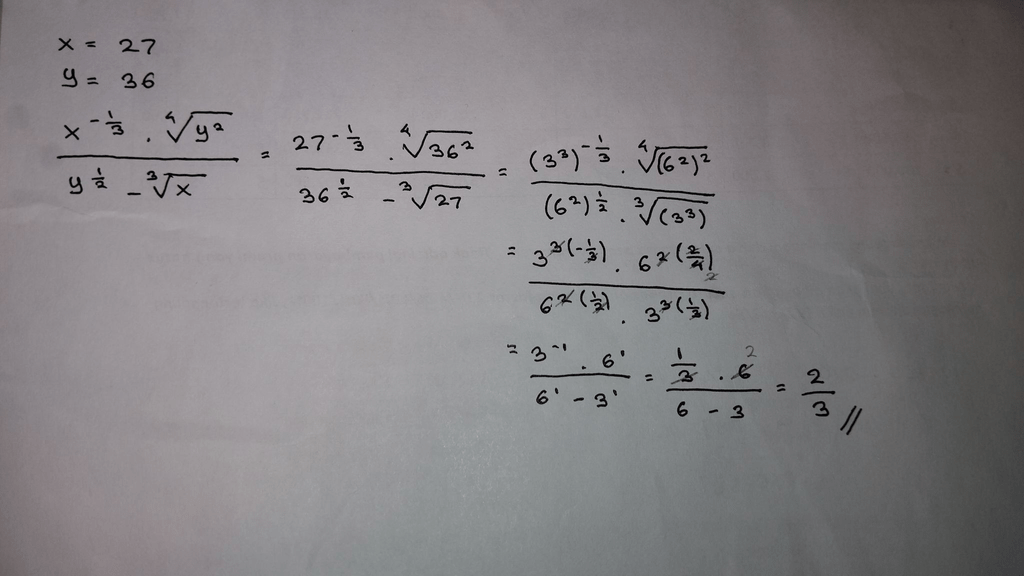 x = 27
y = 36
x^{-1/3} · ∜(y²) / (y^{1/2} - ∛x) = 27^{-1/3} · ∜(36²) / (36^{1/2} - ∛27) = (3³)^{-1/3} · ∜((6²)²) / ((6²)^{1/2} · ∛(3³))
= 3^{3(-1/3)} · 6^{2(2/4)} 2 / (6^{2(1/2)} · 3^{3(1/3)})
= 3^{-1} · 6^1 / (6^1 - 3^1) = 1/3 · 6 2 / (6 - 3) = 2/3 //